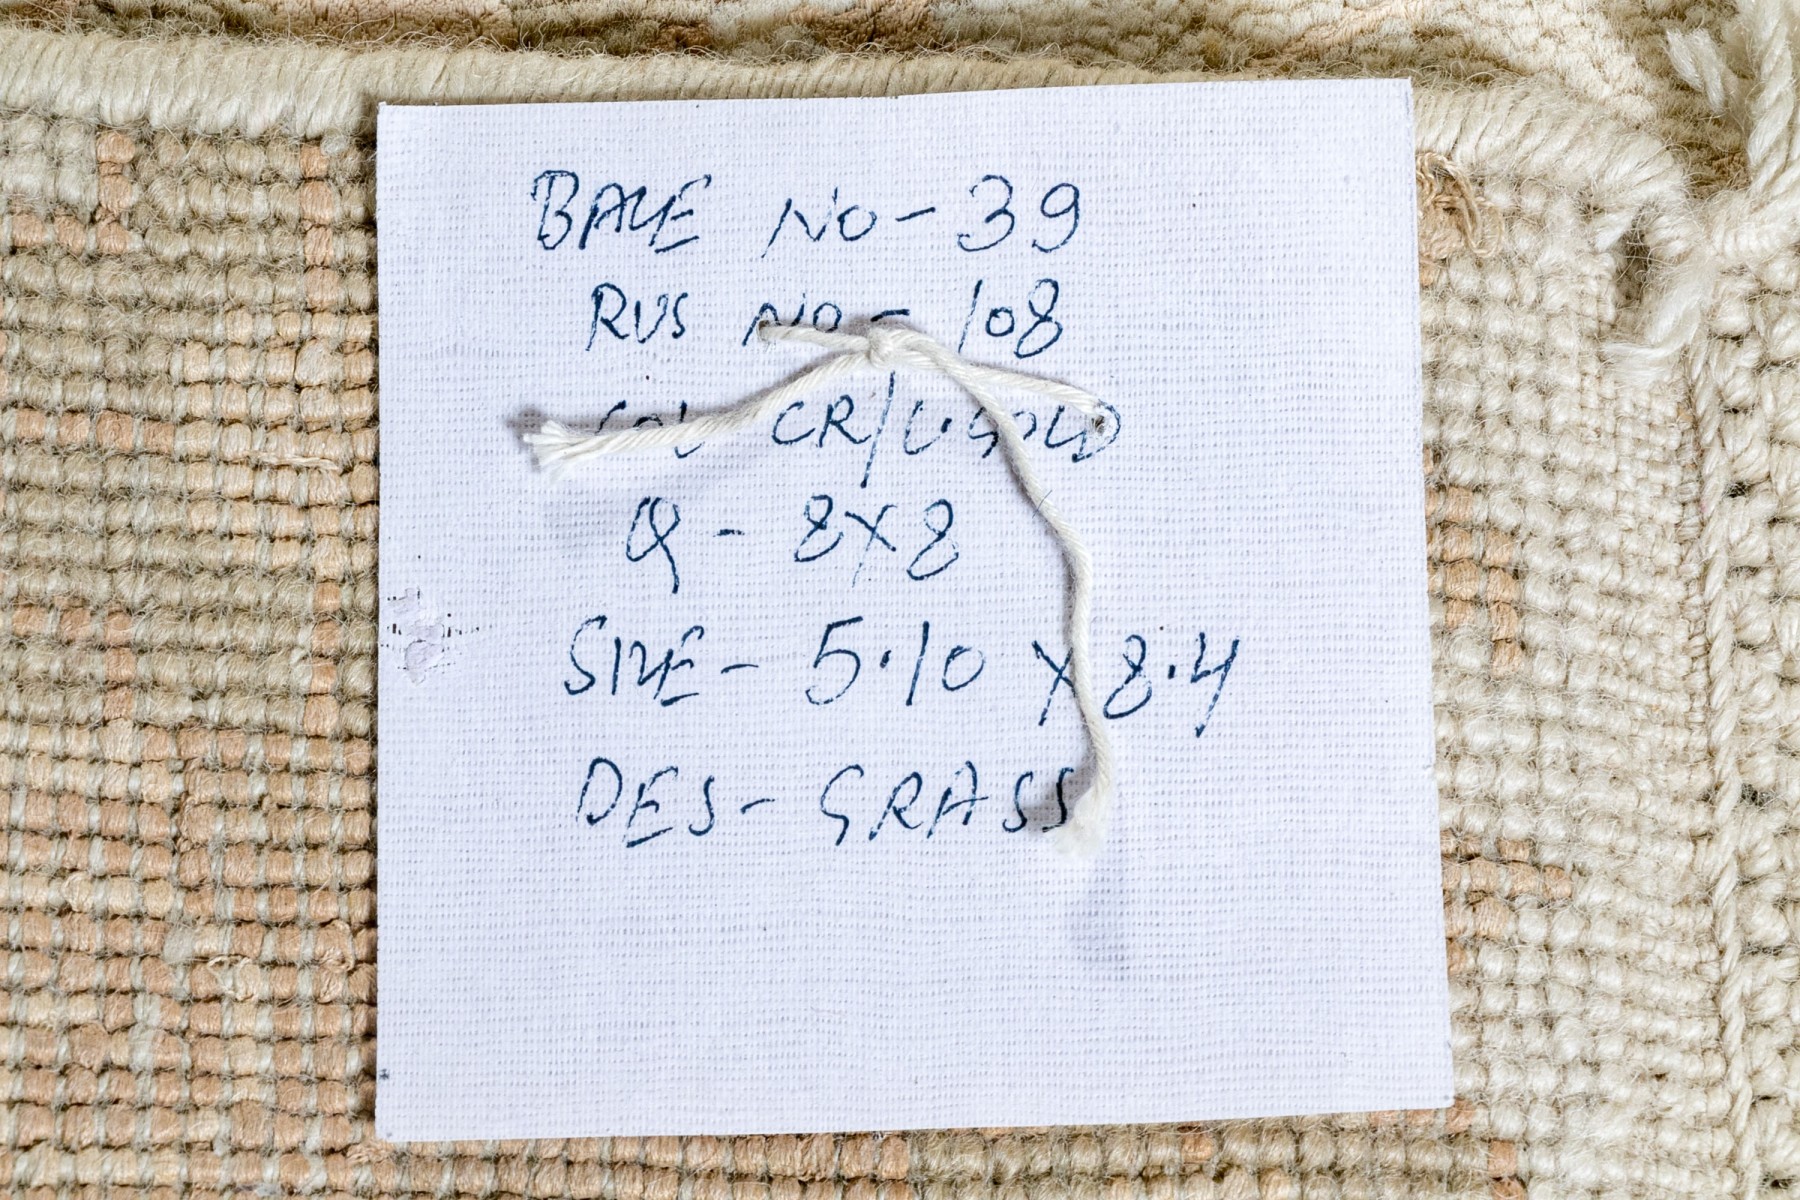 BALE NO - 39
RUS NO - 108
COL CR/L.GOLD
Q - 8X8
SIZE - 5.10 X 8.4
DES - GRASS